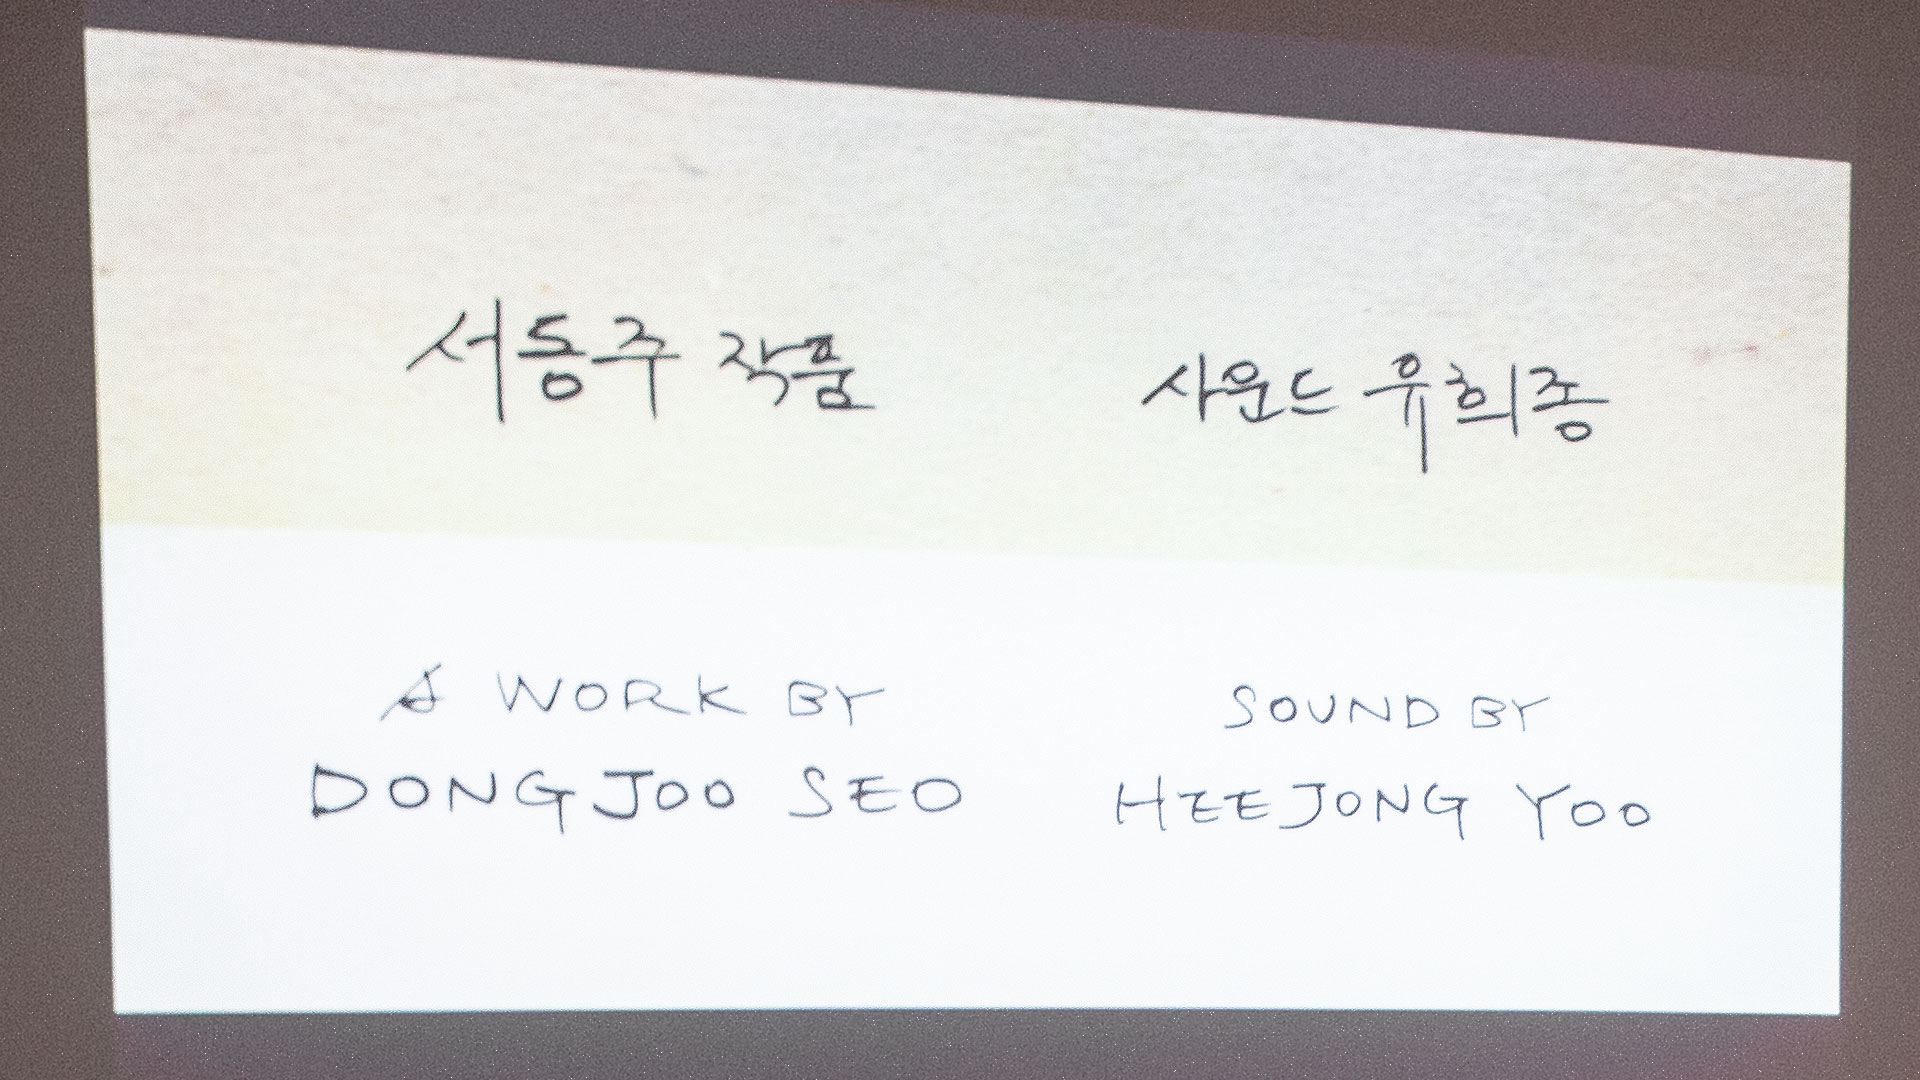 서동주 작품
사운드 유희종
A WORK BY
DONGJOO SEO
SOUND BY
HEEJONG YOO